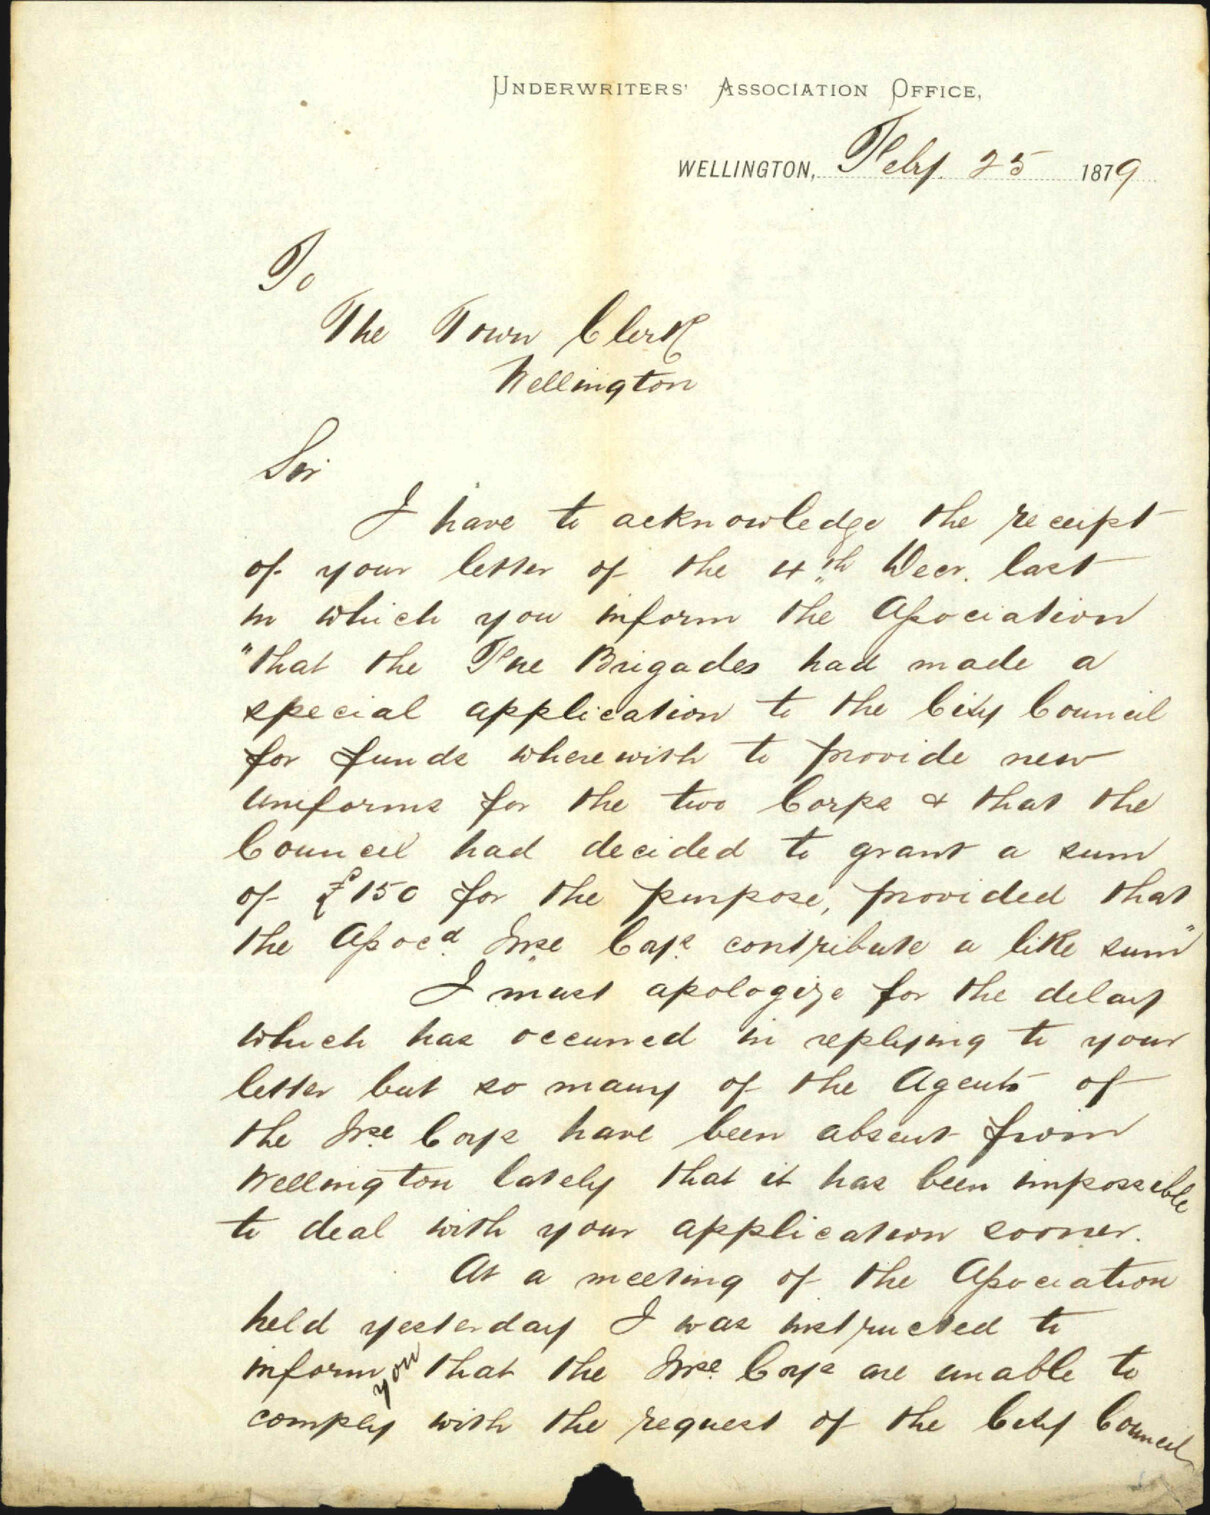 UNDERWRITERS' ASSOCIATION OFFICE,
WELLINGTON, Feby. 25 1879
To
The Town Clerk
Wellington
Sir
I have to acknowledge the receipt
of your letter of the 4th Decr. last
in which you inform the Association
"that the Fire Brigades had made a
special application to the City Council
for funds wherewith to provide new
uniforms for the two Corps & that the
Council had decided to grant a sum
of £150 for the purpose, provided that
the Assocd. Inse Coys. contribute a like sum"
I must apologize for the delay
which has occurred in replying to your
letter but so many of the Agents of
the Inse Coys have been absent from
Wellington lately that it has been impossible
to deal with your application sooner.
At a meeting of the Association
held yesterday I was instructed to
inform you that the Inse. Coys are unable to
comply with the request of the City Council